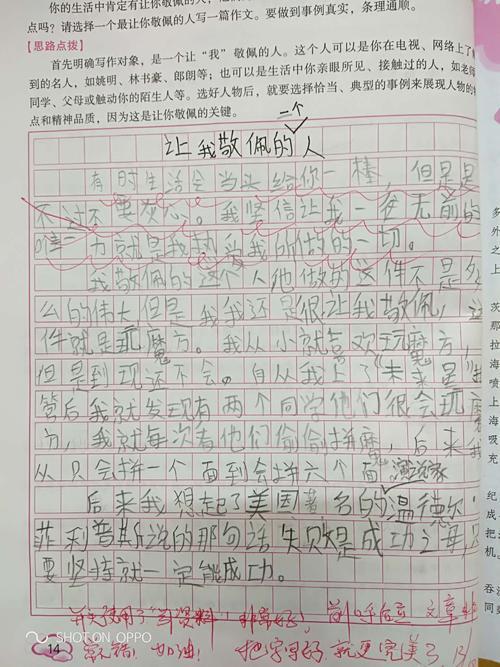 你的生活中肯定有让你敬佩的人,
点吗?请选择一个最让你敬佩的人写一篇作文。要做到事例真实,条理通顺。
【思路点拨】
首先明确写作对象,是一个让“我”敬佩的人。这个人可以是你在电视、网络上了
到的名人,如姚明、林书豪、郎朗等;也可以是生活中你亲眼所见、接触过的人,如老
同学、父母或触动你的陌生人等。选好人物后,就要选择恰当、典型的事例来展现人物的
点和精神品质,因为这是让你敬佩的关键。
一个
让我敬佩的人
有时生活会当头给你一棒,但是是
不过不要灰心。我坚信让我一往无前的
唯一力就是我热爱我所做的一切。
我敬佩的这个人他做的这件不是
么的伟大但是我我还是很让我敬佩,这
件就是玩魔方。我从小就喜欢玩魔方,
但是到现还不会。自从我上了“未来星”
管后我就发现有两个同学他们很会玩魔
方,我就每次看他们偷偷拼魔,后来我
从只会拼一个面到会拼六个面。
演说家
后来我想起了美国著名的温德尔
菲利普斯说的那句话失败是成功之母只
要坚持就一定能成功。
并灵活了“资料”非常好,前呼后应 文章
亲错!加油! 把字写好就更完美了
14
SHOT ON OPPO
外
之
上
茨
那
拉
海
喷
上
海
吸
充
纪
成
把
吞
同